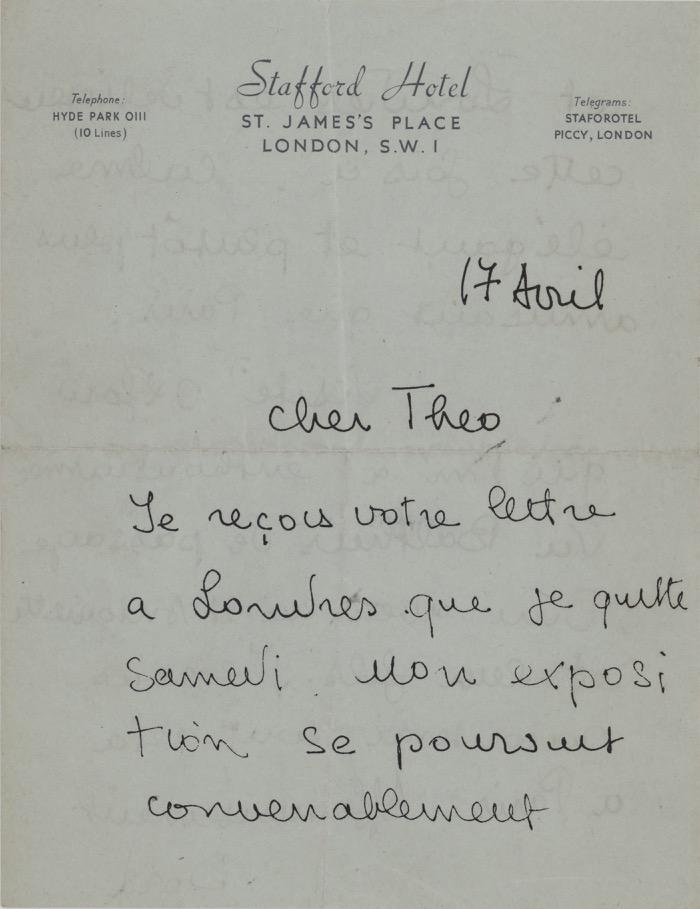 Stafford Hotel
ST. JAMES'S PLACE
LONDON, S.W. 1
Telephone:
HYDE PARK 0111
(10 Lines)
Telegrams:
STAFOROTEL
PICCY, LONDON
17 Avril
cher Theo
Je reçois votre lettre
a Londres que je quitte
samedi. Mon exposi
tion se poursuit
convenablement